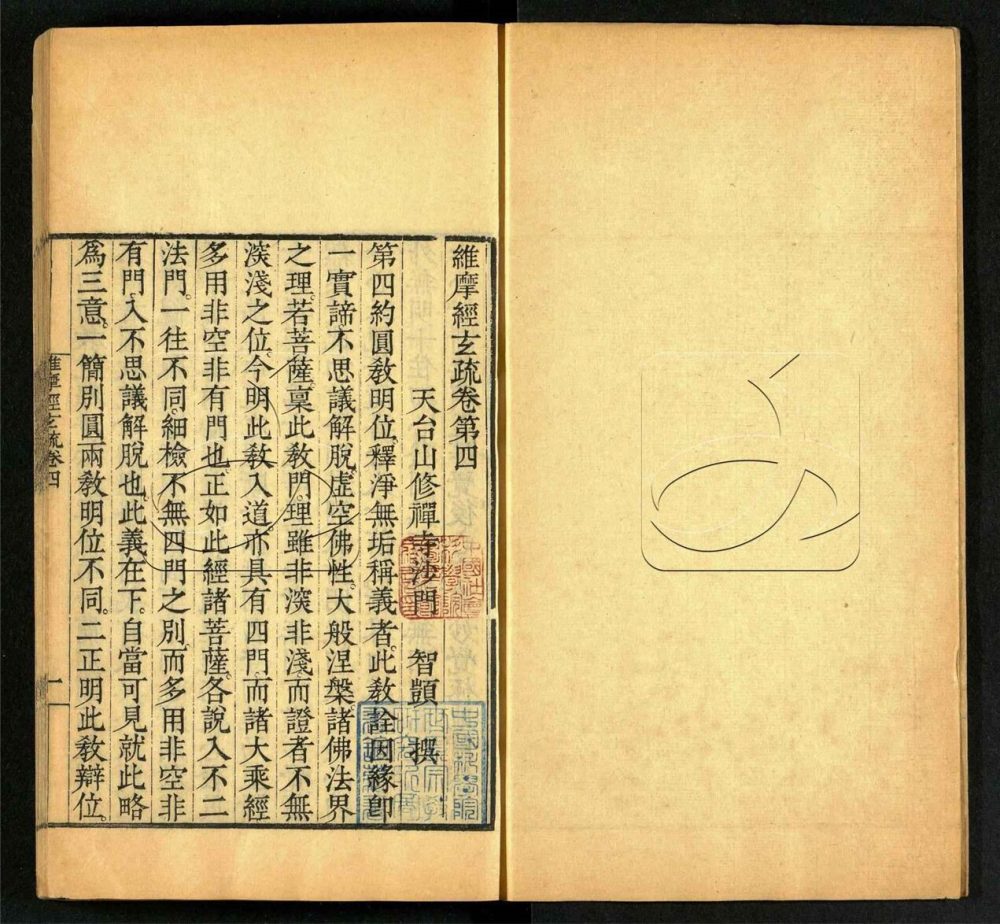 維摩經玄疏卷第四
天台山修禪寺沙門 智顗 撰
第四約圓敎明位釋淨無垢稱義者此敎詮因緣卽
一實諦不思議解脫虛空佛性大般涅槃諸佛法界
之理若菩薩稟此敎門理雖非深非淺而證者不無
深淺之位今明此敎入道亦具有四門而諸大乘經
多用非空非有門也正如此經諸菩薩各說入不二
法門一往不同細檢不無四門之別而多用非空非
有門入不思議解脫也此義在下自當可見就此略
爲三意一簡別圓兩敎明位不同二正明此敎辯位
維摩經玄疏卷四
一